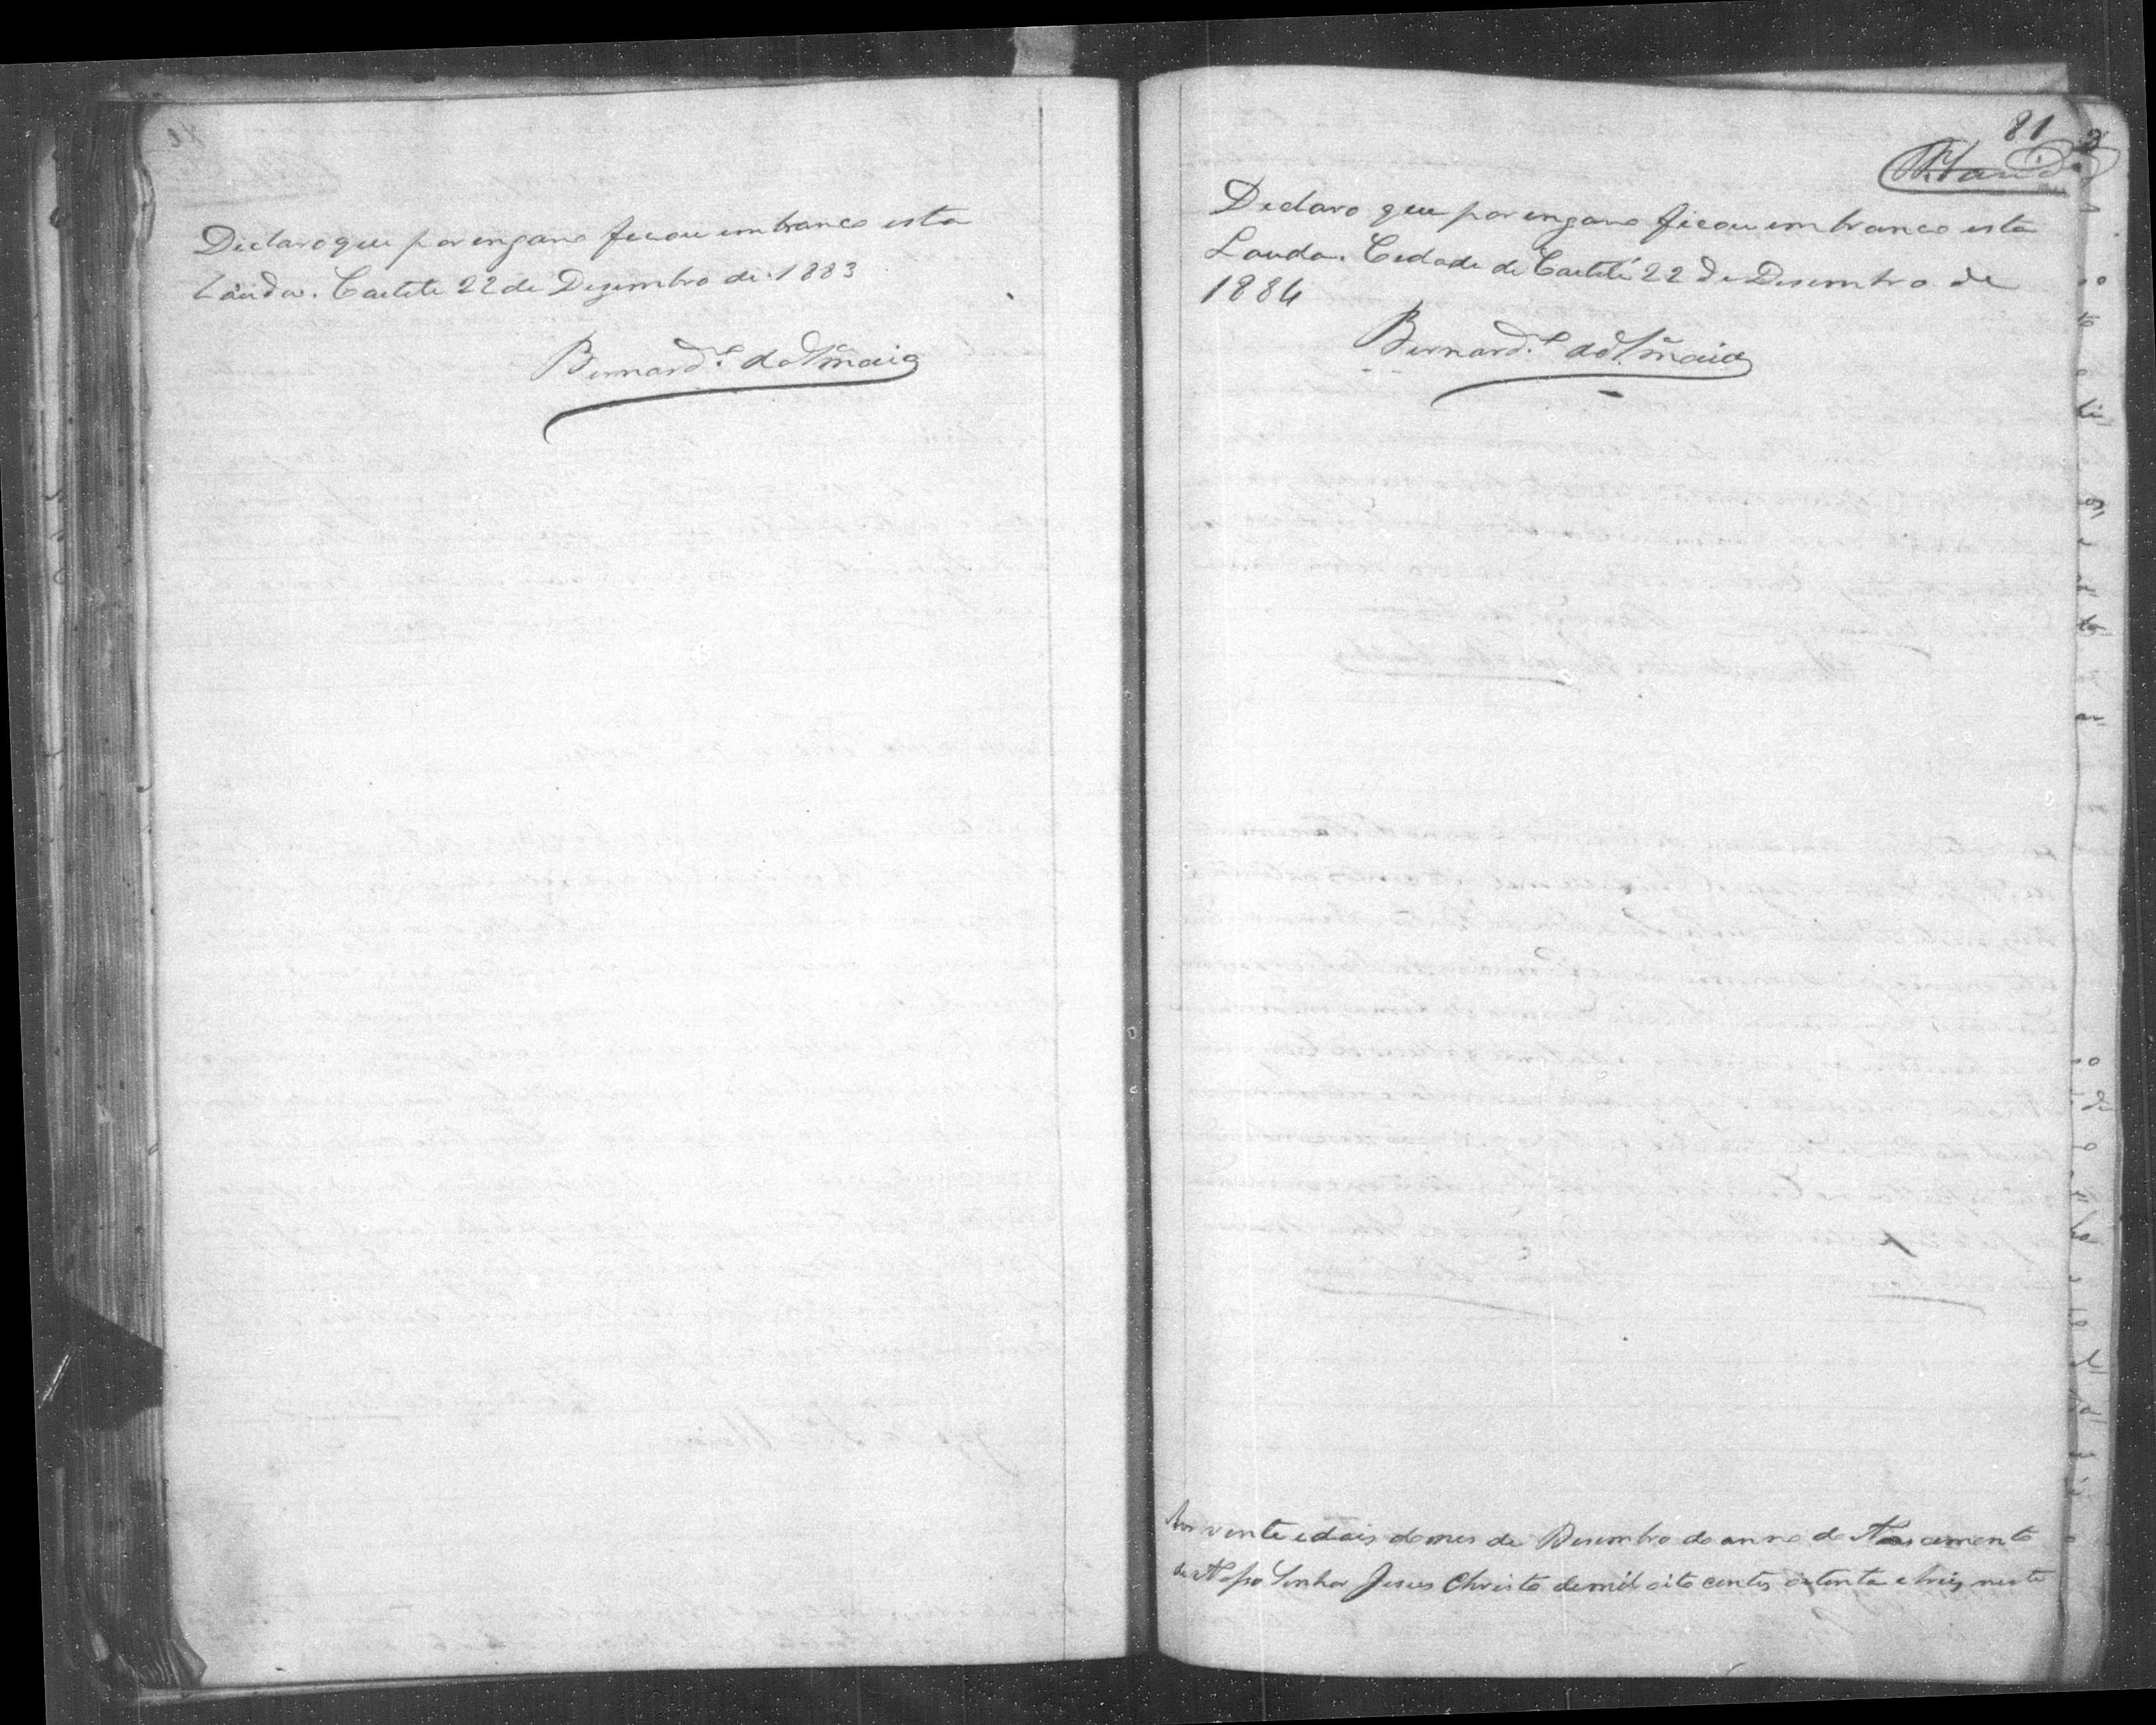 Declaro que por engano ficou em branco esta
Lauda. Caetité 22 de Dezembro de 1883
Bernard.º
81
Declaro que por engano ficou em branco esta
Lauda. Cidade de Caetité 22 de Desembro de
1884
Bernard.º
Aos vinte e dois do mes de Desembro do anno do Nascimento
de Nosso Senhor Jesus Christo de mil oito centos oitenta e treis neste